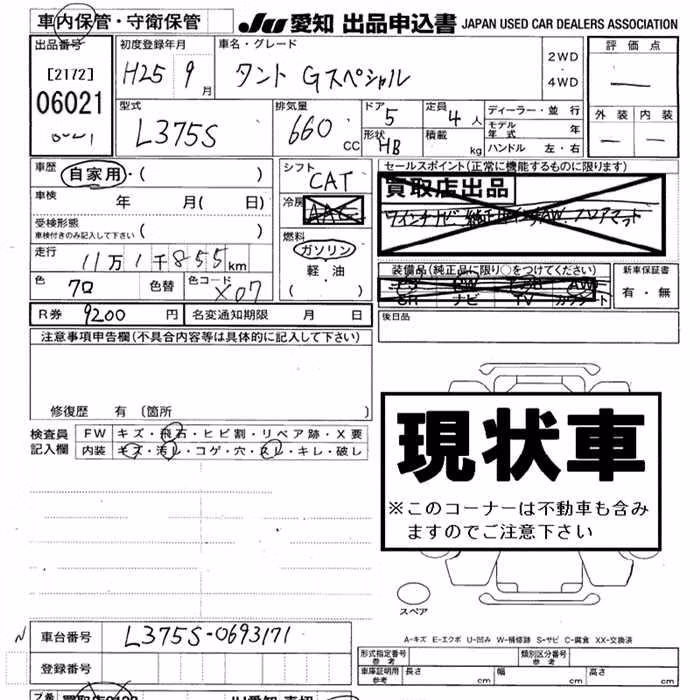 車内保管・守衛保管 JU 愛知 出品申込書 JAPAN USED CAR DEALERS ASSOCIATION
出品番号 初度登録年月 車名・グレード 評価点
[2172] H25 9月 タント Gスペシャル 2WD・4WD —
06021 型式 排気量 ドア 5 定員 4人 ディーラー・並行 外装 内装
L375S 660 CC 形状 HB 積載 kg モデル年式 年 — —
ハンドル 左・右
車歴 自家用・( ) シフト CAT セールスポイント(正常に機能するものに限ります)
買取店出品
車検 年 月( 日) 冷房 AAC
ワインナビ 純正 AW フロアマット
受検形態 車検付きのみ記入して下さい ( ) 燃料 ガソリン
走行 11万1千855km 軽油 装備品(純正品に限り○をつけてください) 新車保証書
色 クロ 色替 色コード X07 ( ) SR ナビ TV AW 有・無
R券 9200円 名変通知期限 月 日 後日品
注意事項申告欄(不具合内容等は具体的に記入して下さい)
修復歴 有 (箇所 )
検査員記入欄 FW キズ・飛石・ヒビ割・リペア跡・X要
内装 キズ・汚し・コゲ・穴・スレ・キレ・破し
現状車
※このコーナーは不動車も含みますのでご注意下さい
スペア
A-キズ E-エクボ U-凹み W-補修跡 S-サビ C-腐食 XX-交換済
N 車台番号 L375S-0693171
登録番号 形式指定番号 参考 類別区分番号 参考
車庫証明用 参考 長さ cm 幅 cm 高さ cm